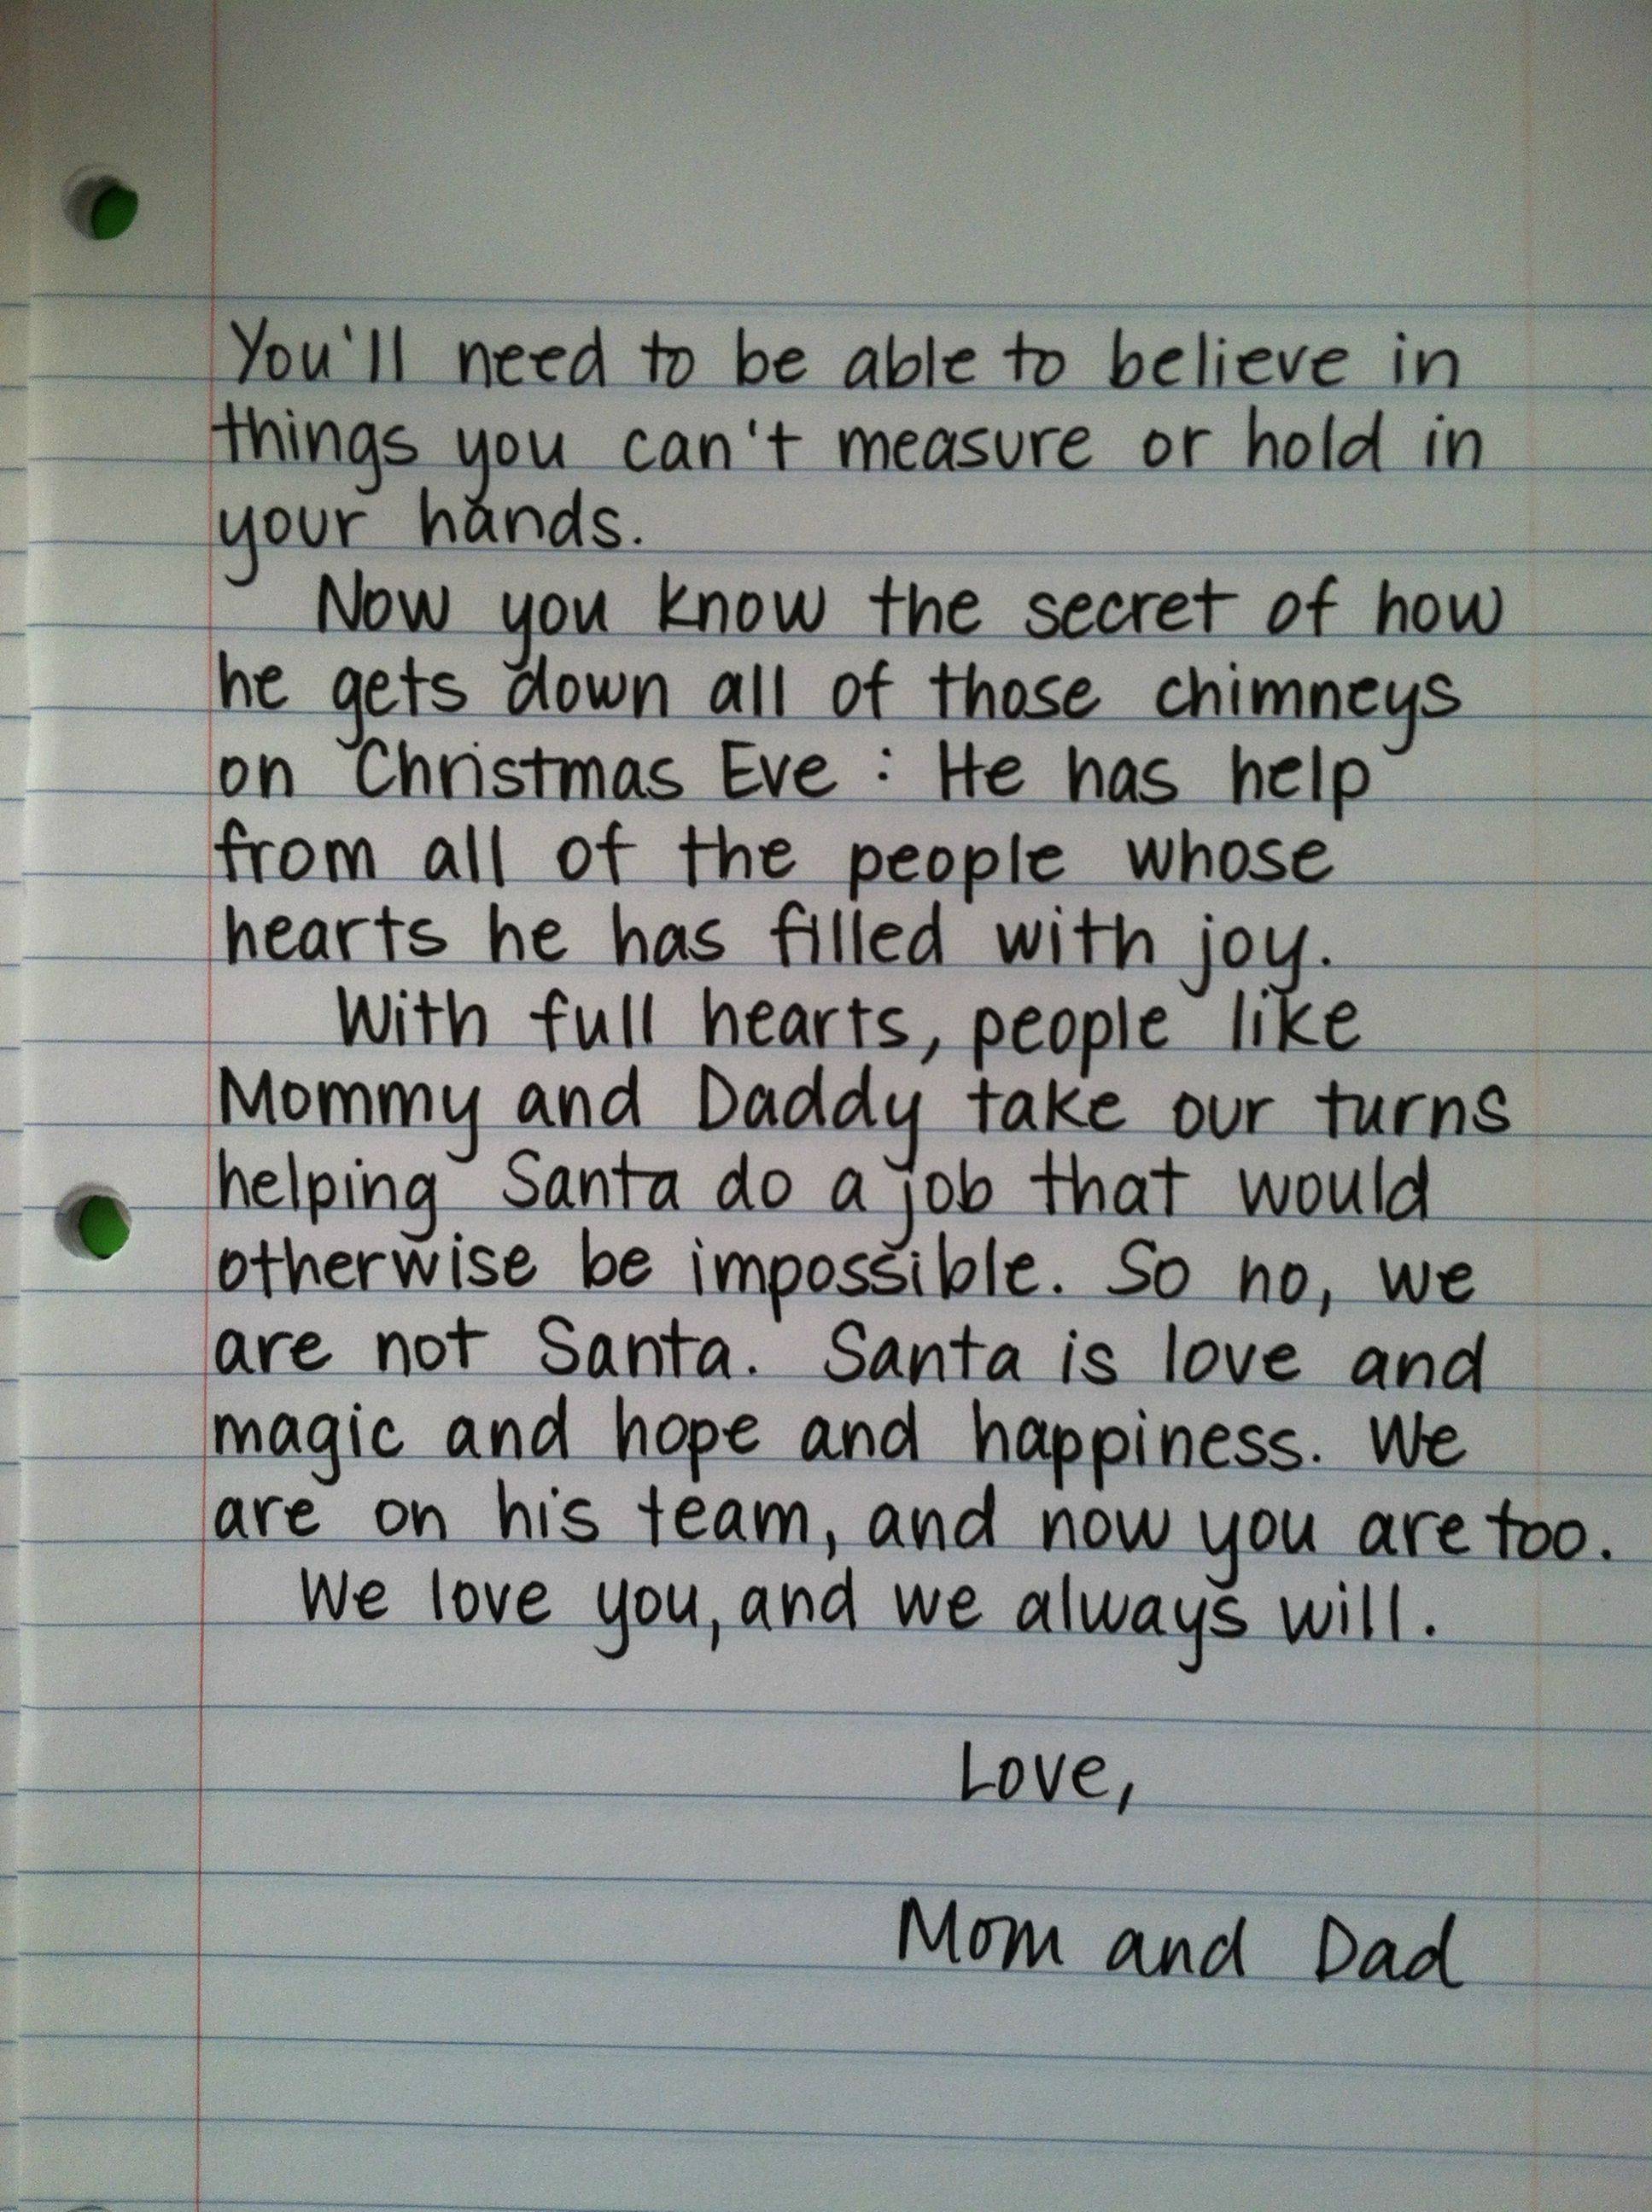 You'll need to be able to believe in
things you can't measure or hold in
your hands.
Now you know the secret of how
he gets down all of those chimneys
on Christmas Eve : He has help
from all of the people whose
hearts he has filled with joy.
With full hearts, people like
Mommy and Daddy take our turns
helping Santa do a job that would
otherwise be impossible. So no, we
are not Santa. Santa is love and
magic and hope and happiness. We
are on his team, and now you are too.
We love you, and we always will.
Love,
Mom and Dad